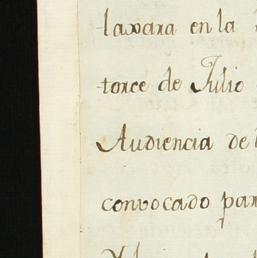 laxara en la
torce de Julio
Audiencia de
convocado par